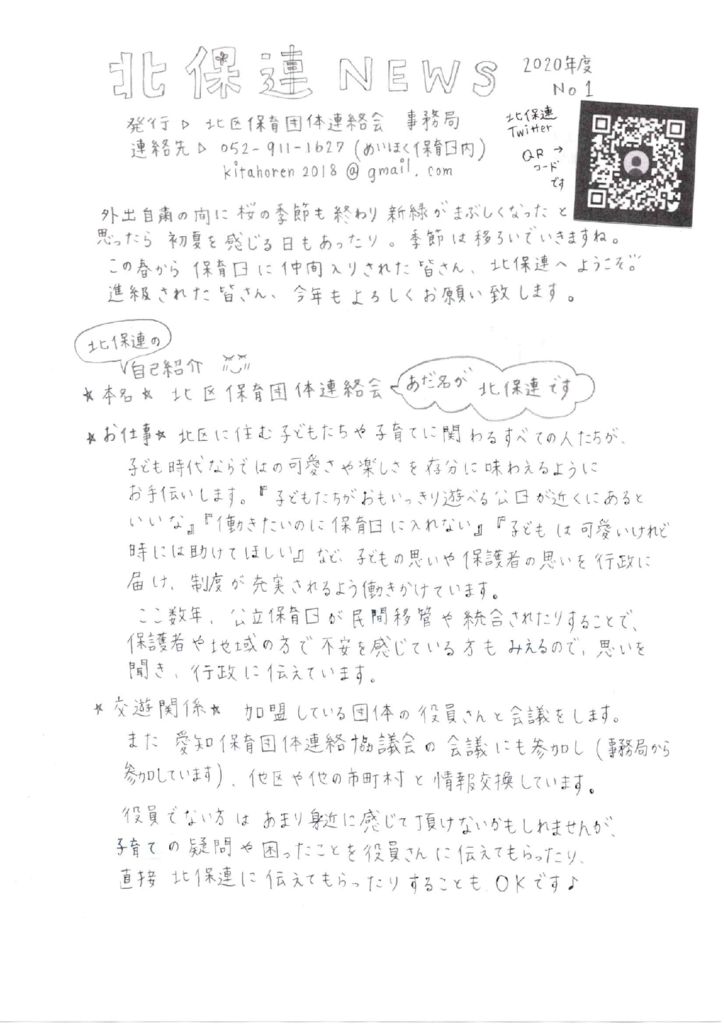 北保連 NEWS 2020年度 No1
発行▷ 北区保育団体連絡会 事務局
連絡先▷ 052-911-1627 (めいほく保育园内)
kitahoren2018@gmail.com
北保連
Twitter
QR →
コード
です
外出自粛の向に桜の季節も終わり新緑がまぶしくなったと
思ったら 初夏を感じる日もあったり。季節は移ろいでいきますね。
この春から 保育园に仲間入りされた皆さん、北保連へ ようこそ!!
進級された皆さん、今年もよろしくお願い致します。
北保連の
自己紹介
★本名★ 北区保育団体連絡会
あだ名が 北保連です
★お仕事★ 北区に住む子どもたちや子育てに関わるすべての人たちが、
子ども時代ならではの可愛さや楽しさを存分に味わえるように
お手伝いします。『子どもたちがおもいっきり遊べる公园が近くにあると
いいな』『働きたいのに保育园に入れない』『子どもは可愛いけれど
時には助けてほしい』など、子どもの思いや保護者の思いを行政に
届け、制度が充実されるよう働きかけています。
ここ数年、公立保育园が民間移管や統合されたりすることで、
保護者や地域の方で不安を感じている方もみえるので、思いを
聞き、行政に伝えています。
★交遊関係★ 加盟している団体の役員さんと会議をします。
また 愛知保育団体連絡協議会の会議にも参加し(事務局から
参加しています)、他区や他の市町村と情報交換しています。
役員でない方は あまり身近に感じて頂けないかもしれませんが、
子育ての疑問や困ったことを役員さんに伝えてもらったり、
直接 北保連に伝えてもらったりすることも OKです♪